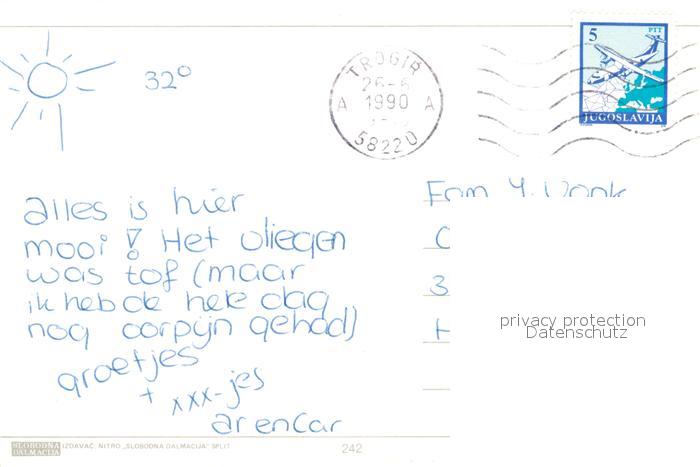 32°
TROGIR
26-6
1990
A A
58220
5 PTT
JUGOSLAVIJA
alles is hier
mooi! Het vliegen
was tof (maar
ik heb de hele dag
nog oorpijn gehad)
groetjes
+ xxx-jes
Fam Y. Donk
3
privacy protection
Datenschutz
SLOBODNA
DALMACIJA
IZDAVAČ: NITRO „SLOBODNA DALMACIJA" SPLIT
242